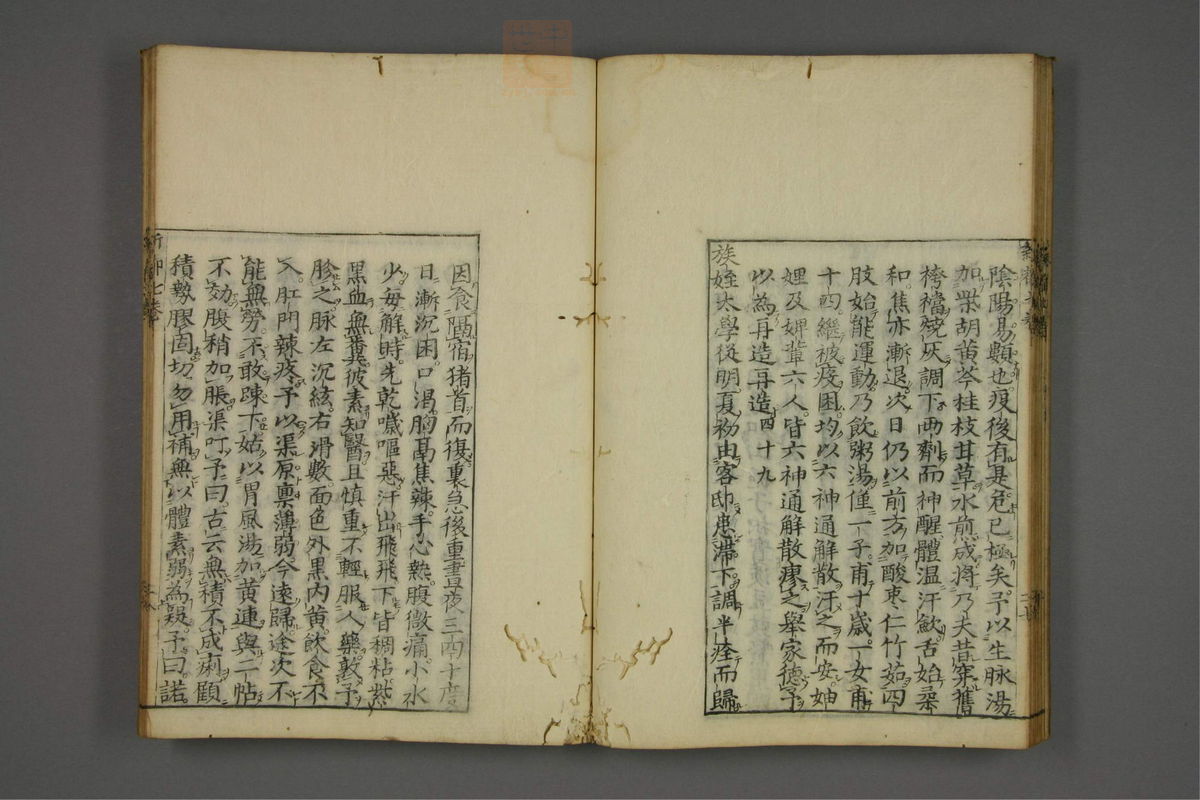 陰陽易類也瘦後有是危已極矣予以生脉湯
加柴胡黃芩桂枝甘草水煎成將乃夫昔穿舊
袴襠燒灰調下兩劑而神醒體溫汗斂舌始柔
和焦亦漸退次日仍以前方加酸枣仁竹茹四
肢始能運動乃飲粥湯僅一子甫十歲一女甫
十四繼被疫困均以六神通解散汗之而安妯
娌及婢輩六人皆六神通解散瘳之舉家德予
以為再造再造四十九
族姪太學從明夏初由客邸患滯下調半痊而歸
因食隔宿猪首而復裏急後重晝夜三四十度
日漸沉困口渴胸鬲焦辣手心熱腹微痛小水
少每解時先乾噦嘔惡汗出飛飛下皆稠粘紫
黑血無糞彼素知醫且慎重不輕服人藥敦予
胗之脉左沉絃右滑數面色外黑內黃飲食不
入肛門辣疼予以渠原禀薄弱今遠歸途次不
能無勞不敢踈下姑以胃風湯加黃連與二帖
不効腹稍加脹渠叮予曰古云無積不成痢顧
積數膠固切勿用補無以體素弱為疑予曰諾